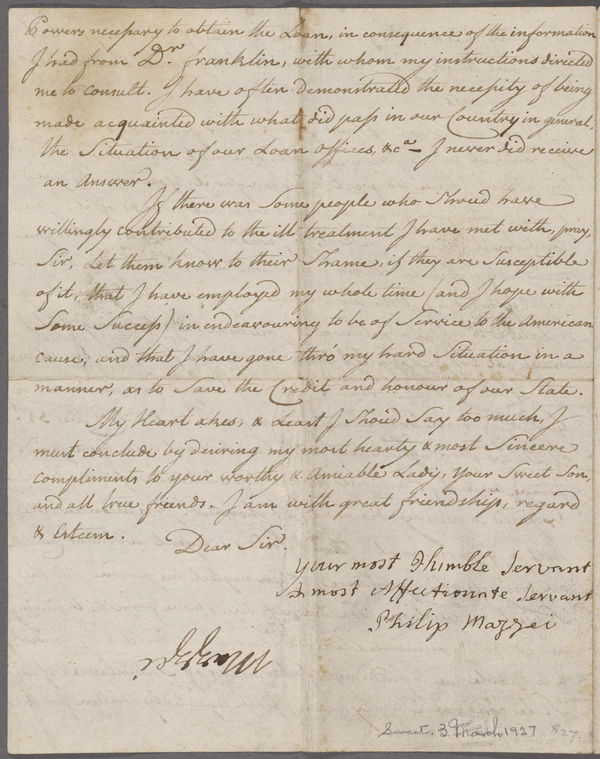 Powers necessary to obtain the Loan, in consequence of the information
I had from Dr. Franklin, with whom my instructions directed
me to consult. I have often demonstrated the necessity of being
made acquainted with what did pass in our Country in general,
the Situation of our Loan offices, &ca— I never did receive
an answer.
If there was Some people who Should have
willingly contributed to the ill treatment I have met with, pray,
Sir, Let them know to their Shame, if they are Susceptible
of it, that I have employed my whole time (and I hope with
Some Success) in endeavouring to be of Service to the American
cause, and that I have gone thro' my hard Situation in a
manner, as to Save the Credit and honour of our State.
My Heart akes, & Least I Should Say too much, I
must conclude by desiring my most hearty & most Sincere
compliments to your worthy & Amiable Lady, your Sweet Son,
and all true friends. I am with great friendship, regard
& Esteem.
Dear Sir.
your most Humble Servant
& most Affectionate Servant
Philip Mazzei
Sweet. 3 March 1927
827.